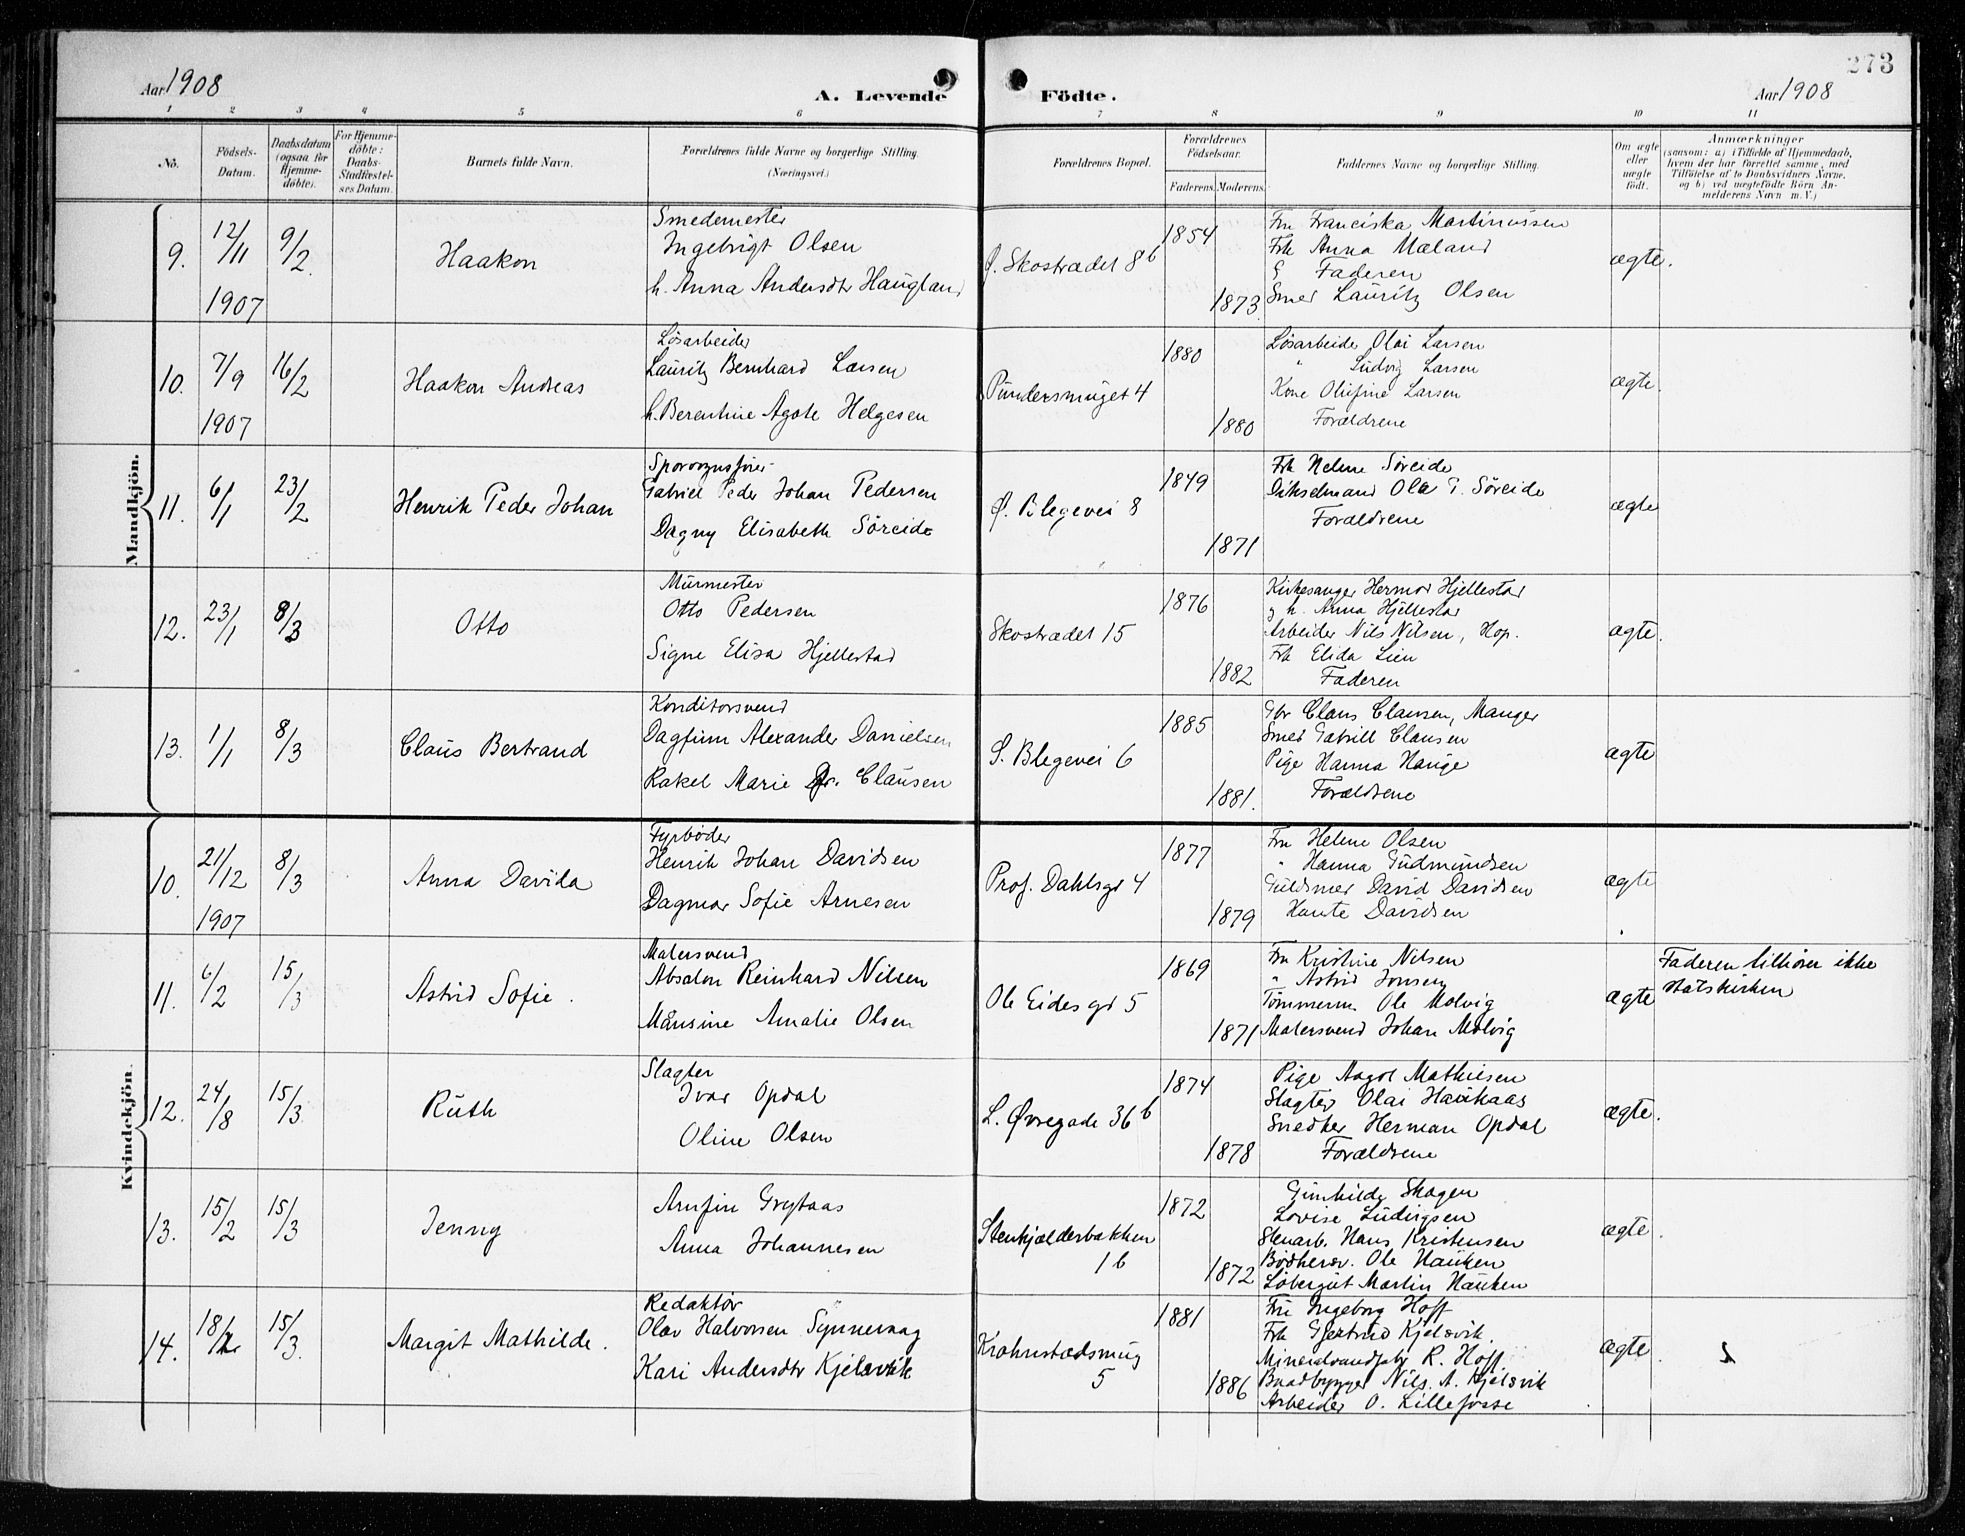 273
Aar 1908
A. Levende Födte.
Aar 1908
1 2 3 4 5 6 7 8 9 10 11
No.
Födsels-
Datum.
Daabsdatum
(ogsaa for
Hjemme-
döbte).
For Hjemme-
döbte:
Daabs-
Stadfæstel-
ses Datum.
Barnets fulde Navn.
Forældrenes fulde Navne og borgerlige Stilling.
(Næringsvei.)
Forældrenes Bopæl.
Forældrenes
Födselsaar.
Faderens.
Moderens.
Faddernes Navne og borgerlige Stilling.
Om ægte
eller
uægte
födt.
Anmærkninger
(saasom: a) i Tilfælde af Hjemmedaab,
hvem der har forrettet samme, med
Tilföielse af to Daabsvidners Navne.
og b) ved uægtefödte Börn An-
melderens Navn m.V.)
Mandkjön.
9.
12/11
1907
9/2.
Haakon
Smedemester
Ingebrigt Olsen
h. Anna Andersdtr Haugland
Ø. Skostrædet 8b
1854
1873.
Fru Franciska Martinussen
Frk Anna Mæland
Faderen
Smed Lauritz Olsen
ægte.
10.
7/9
1907
16/2
Haakon Andreas
Løsarbeider
Lauritz Bernhard Larsen
h. Berentine Agate Helgesen
Pundersmuget 4
1880
1880
Løsarbeide Olai Larsen
" Ludvig Larsen
Kone Olufine Larsen
Forældrene
ægte.
11.
6/1
23/2
Henrik Peder Johan
Sporvognsfører
Gabriel Peder Johan Pedersen
Dagny Elisabeth Søreide
Ø. Blegevei 8
1849
1871
Frk Helene Søreide
Ola G. Søreide
Forældrene
ægte
12.
23/1
8/3
Otto
Murmester
Otto Pedersen
Signe Elisa Hjellestad
Skostrædet 15
1876
1882
Kirkesanger Hermod Hjellestad
g h. Anna Hjellestad
Arbeider Nils Nilsen, Hop.
Frk Elida Lien
Faderen
ægte.
13.
1/1
8/3
Claus Bertrand
Konditorsvend
Dagfinn Alexander Danielsen
Rakel Marie Clausen
S. Blegevei 6
1885
1881.
Gbr Claus Clausen, Manger
Smed Gabriell Clausen
Pige Hanna Hauge
Forældrene
ægte
Kvindekjön.
10.
21/12
1907
8/3
Anna Davida
Fyrbøder
Henrik Johan Davidsen
Dagmar Sofie Arnesen
Prof. Dahlsgd 4
1877
1879
Fru Helene Olsen
" Hanna Gudmundsen
Guldsmed David Davidsen
Davidsen
ægte
11.
6/2
15/3
Astrid Sofie.
Malersvend
Absalon Reinhard Nilsen
Månsine Amalie Olsen
Ole Eides gd 5
1869
1871
Fru Kristine Nilsen
" Astrid Jonsen
Tømmerm. Ole Molvig
Malersvend Johan Molvig
ægte
Faderen tilhører ikke
statskirken
12.
24/8
15/3
Ruth
Slagter
Ivar Opdal
Oline Olsen
L. Øvregade 36b
1874
1878
Pige Aagot Mathiesen
Slagter Olai Haukaas
Snedker Herman Opdal
Forældrene
ægte.
13.
15/2
15/3
Jenny
Arnfin Grytaas
Anna Johannesen
Stenkjælderbakken
1b
1872
1872
Gunhilde Skagen
Lovise Ludvigsen
Stenarb. Hans Kristensen
Bødkersv. Ole Hauken
Løbergut Martin Hauken
ægte.
14.
18/2
15/3.
Margit Mathilde.
Redaktør
Olav Halvorsen Synnevaag
Kari Andersdtr Kjelsvik
Krohnstadsmug
5
1881
1886
Fru Ingeborg Hoff
Frk Gjertrud Kjelsvik.
Mineralvandfabr R. Hoff
Baadbygger Nils. A. Kjelsvik
Arbeider O. Lillefosse
ægte.